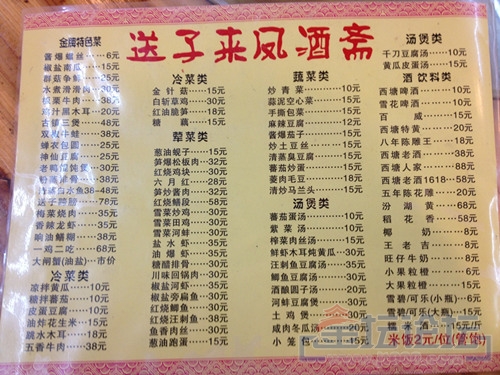 送子来凤酒斋
金牌特色菜
酱爆螺丝-----6元
椒盐南瓜-----15元
群菇争鲜-----30元
水煮滑滑肉-----30元
板栗牛肉-----38元
鸡汁黑木耳-----20元
古镇三烤-----58元
双椒牛蛙-----38元
蝉衣包圆-----25元
神仙豆腐-----25元
老鸭馄饨煲-----30元
-----38-48元
-----78元
梅菜烧肉-----35元
香辣龙虾-----35元
响油鳝糊-----68元
一鸡二吃-----68元
大闸蟹(油盐)-市价
冷菜类
凉拌黄瓜-----10元
糖拌番茄-----10元
皮蛋豆腐-----10元
油炸花生米-----15元
跳水木耳-----18元
五香牛肉-----38元
冷菜类
金针菇-----15元
白斩草鸡-----30元
红油脆笋-----18元
糖藕-----15元
荤菜类
葱油蚬子-----15元
笋爆松板肉-----32元
红烧鸡块-----30元
六月红-----28元
笋炒酱肉-----32元
红烧鳗段-----58元
雪菜炒鸡-----30元
雪菜田鸡-----30元
雪菜河蚌-----30元
盐水虾-----35元
油爆虾-----35元
糖醋排骨-----30元
川味回锅肉-----30元
椒盐河虾-----35元
椒盐旁扁鱼-----30元
红烧鲫鱼-----30元
红烧汪刺鱼-----38元
鱼香肉丝-----30元
葱油跑蛋-----15元
蔬菜类
炒青菜-----10元
蒜泥空心菜-----15元
手撕包菜-----15元
麻辣豆腐-----12元
酱爆茄子-----15元
炒土豆丝-----15元
清蒸臭豆腐-----15元
番茄炒蛋-----15元
菱肉毛豆-----18元
清炒马兰头-----15元
汤煲类
番茄蛋汤-----10元
紫菜汤-----10元
榨菜肉丝汤-----15元
鲜虾木耳炖黄瓜---30元
汪刺鱼豆腐汤-----30元
鲫鱼豆腐汤-----30元
酒酿圆子汤-----20元
河蚌豆腐煲-----30元
土鸡煲-----68元
咸肉冬笋汤-----20元
小笼包-----15元
汤煲类
千刀豆腐汤-----10元
黄瓜皮蛋汤-----15元
酒饮料类
西塘啤酒-----10元
雪花啤酒-----10元
百威-----15元
西塘特黄-----20元
八年陈雕王-----30元
西塘老酒-----38元
西塘人家-----88元
西塘老酒1618---58元
五年陈花雕-----20元
汾湖黄-----68元
稻花香-----58元
椰奶-----8元
王老吉-----8元
旺仔牛奶-----8元
小果粒橙-----6元
大果粒橙-----15元
雪碧/可乐(小瓶)--6元
雪碧/可乐(大瓶)--15元
米酒-----15元/斤
米饭2元/位(管饱)